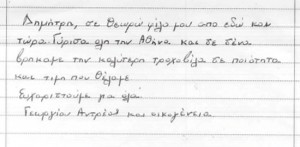 Δημήτρη, σε θεωρώ φίλο μου απο εδώ και
τώρα. Γύρισα ολη την Αθήνα και σε σένα
βρηκαμε την καλύτερη τραχοβίλα σε ποιότητα
και τιμη που θέλαμε
Ευχαριστούμε για ολα.
Γεωργίου Αντρέας και οικογένεια